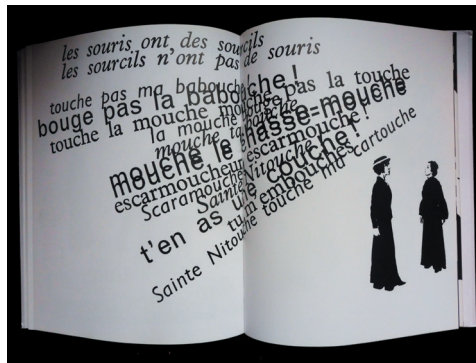 les souris ont des sourcils
les sourcils n'ont pas de souris
touche pas ma babouche
bouge pas la babouche!
touche la mouche mouche pas la touche
la mouche
mouche ta
mouche le chasse=mouche
escarmoucheur escarmouche!
Scaramouche
Sainte Nitouche
t'en as une couche!
tu m'embouches
Sainte Nitouche touche ma cartouche